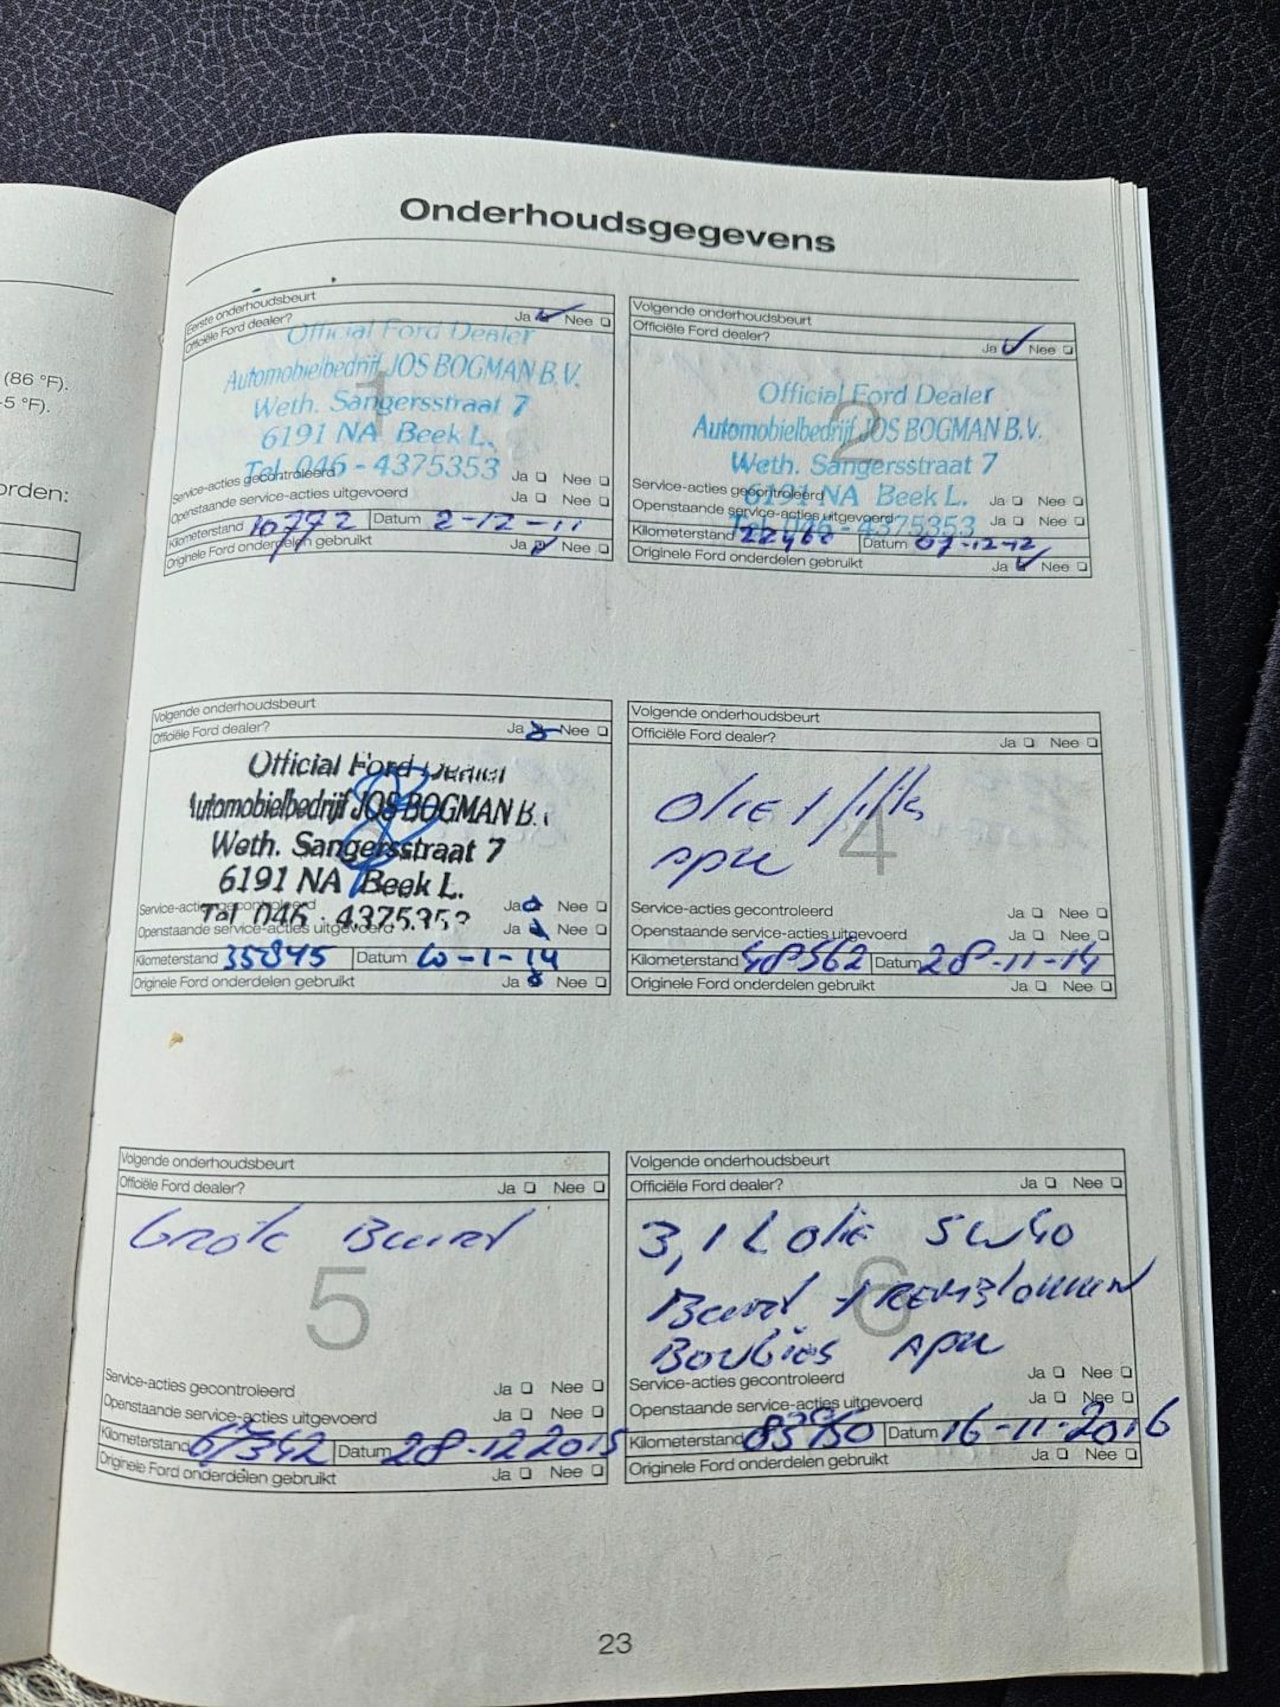 Onderhoudsgegevens
(86 °F).
-5 °F).
orden:
Eerste onderhoudsbeurt
Officiële Ford dealer? Ja Nee
Official Ford Dealer
Automobielbedrijf JOS BOGMAN B.V.
Weth. Sangersstraat 7
6191 NA Beek L.
Tel. 046 - 4375353
1
Service-acties gecontroleerd Ja Nee
Openstaande service-acties uitgevoerd Ja Nee
Kilometerstand 10772 Datum 2-12-11
Originele Ford onderdelen gebruikt Ja Nee
Volgende onderhoudsbeurt
Officiële Ford dealer? Ja Nee
Official Ford Dealer
2
Automobielbedrijf JOS BOGMAN B.V.
Weth. Sangersstraat 7
6191 NA Beek L.
Tel. 046 - 4375353
Service-acties gecontroleerd Ja Nee
Openstaande service-acties uitgevoerd Ja Nee
Kilometerstand 22460 Datum 07-12-12
Originele Ford onderdelen gebruikt Ja Nee
Volgende onderhoudsbeurt
Officiële Ford dealer? Ja Nee
Official Ford Dealer
Automobielbedrijf JOS BOGMAN B.V.
Weth. Sangersstraat 7
6191 NA Beek L.
Tel. 046 - 4375353
Service-acties gecontroleerd Ja Nee
Openstaande service-acties uitgevoerd Ja Nee
Kilometerstand 35845 Datum 10-1-14
Originele Ford onderdelen gebruikt Ja Nee
Volgende onderhoudsbeurt
Officiële Ford dealer? Ja Nee
4
Service-acties gecontroleerd Ja Nee
Openstaande service-acties uitgevoerd Ja Nee
Kilometerstand 48562 Datum 28-11-14
Originele Ford onderdelen gebruikt Ja Nee
Volgende onderhoudsbeurt
Officiële Ford dealer? Ja Nee
Grote Beurt
5
Service-acties gecontroleerd Ja Nee
Openstaande service-acties uitgevoerd Ja Nee
Kilometerstand 67342 Datum 28-12 2015
Originele Ford onderdelen gebruikt Ja Nee
Volgende onderhoudsbeurt
Officiële Ford dealer? Ja Nee
3,1 L olie 5W40
Beurt + Remblokken
6
Bougies
Service-acties gecontroleerd Ja Nee
Openstaande service-acties uitgevoerd Ja Nee
Kilometerstand 83950 Datum 16-11-2016
Originele Ford onderdelen gebruikt Ja Nee
23